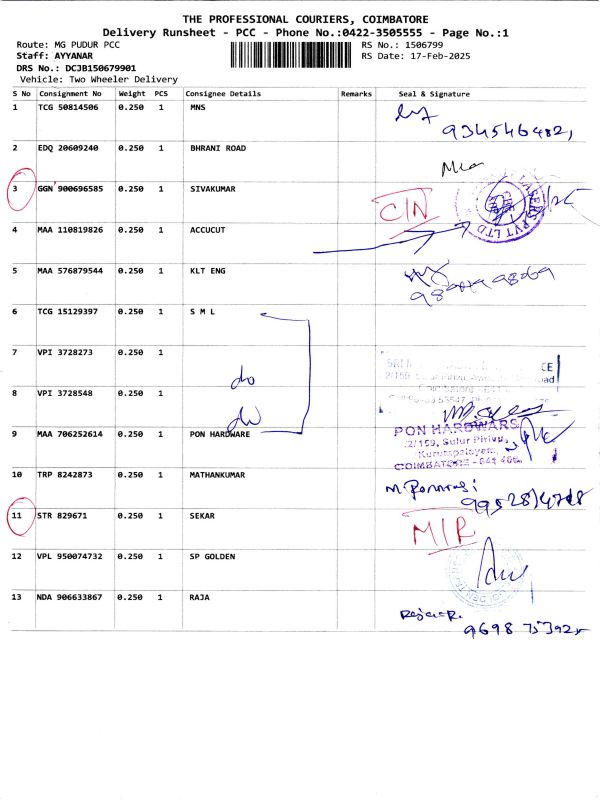 THE PROFESSIONAL COURIERS, COIMBATORE
Delivery Runsheet - PCC - Phone No.:0422-3505555 - Page No.:1
Route: MG PUDUR PCC
RS No.: 1506799
Staff: AYYANAR
RS Date: 17-Feb-2025
DRS No.: DCJB150679901
Vehicle: Two Wheeler Delivery
S No Consignment No Weight PCS Consignee Details Remarks Seal & Signature
1 TCG 50814506 0.250 1 MNS
2 EDQ 20609240 0.250 1 BHRANI ROAD
3 GGN 900696585 0.250 1 SIVAKUMAR C/N
PVT LTD
4 MAA 110819826 0.250 1 ACCUCUT
5 MAA 576879544 0.250 1 KLT ENG
6 TCG 15129397 0.250 1 S M L
7 VPI 3728273 0.250 1
do
8 VPI 3728548 0.250 1
do
9 MAA 706252614 0.250 1 PON HARDWARE
PON HARDWARS
2/159, Sulur Pirivu,
Kurumpalayam,
COIMBATORE - 641
10 TRP 8242873 0.250 1 MATHANKUMAR
11 STR 829671 0.250 1 SEKAR
12 VPL 950074732 0.250 1 SP GOLDEN
13 NDA 906633867 0.250 1 RAJA